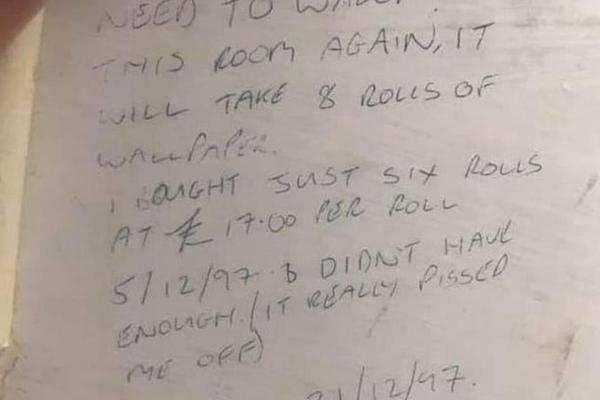 NEED TO
THIS ROOM AGAIN, IT
WILL TAKE 8 ROLLS OF
WALLPAPER.
I BOUGHT JUST SIX ROLLS
AT £17.00 PER ROLL
5/12/97. & DIDN'T HAVE
ENOUGH. (IT REALLY PISSED
ME OFF)
21/12/97.